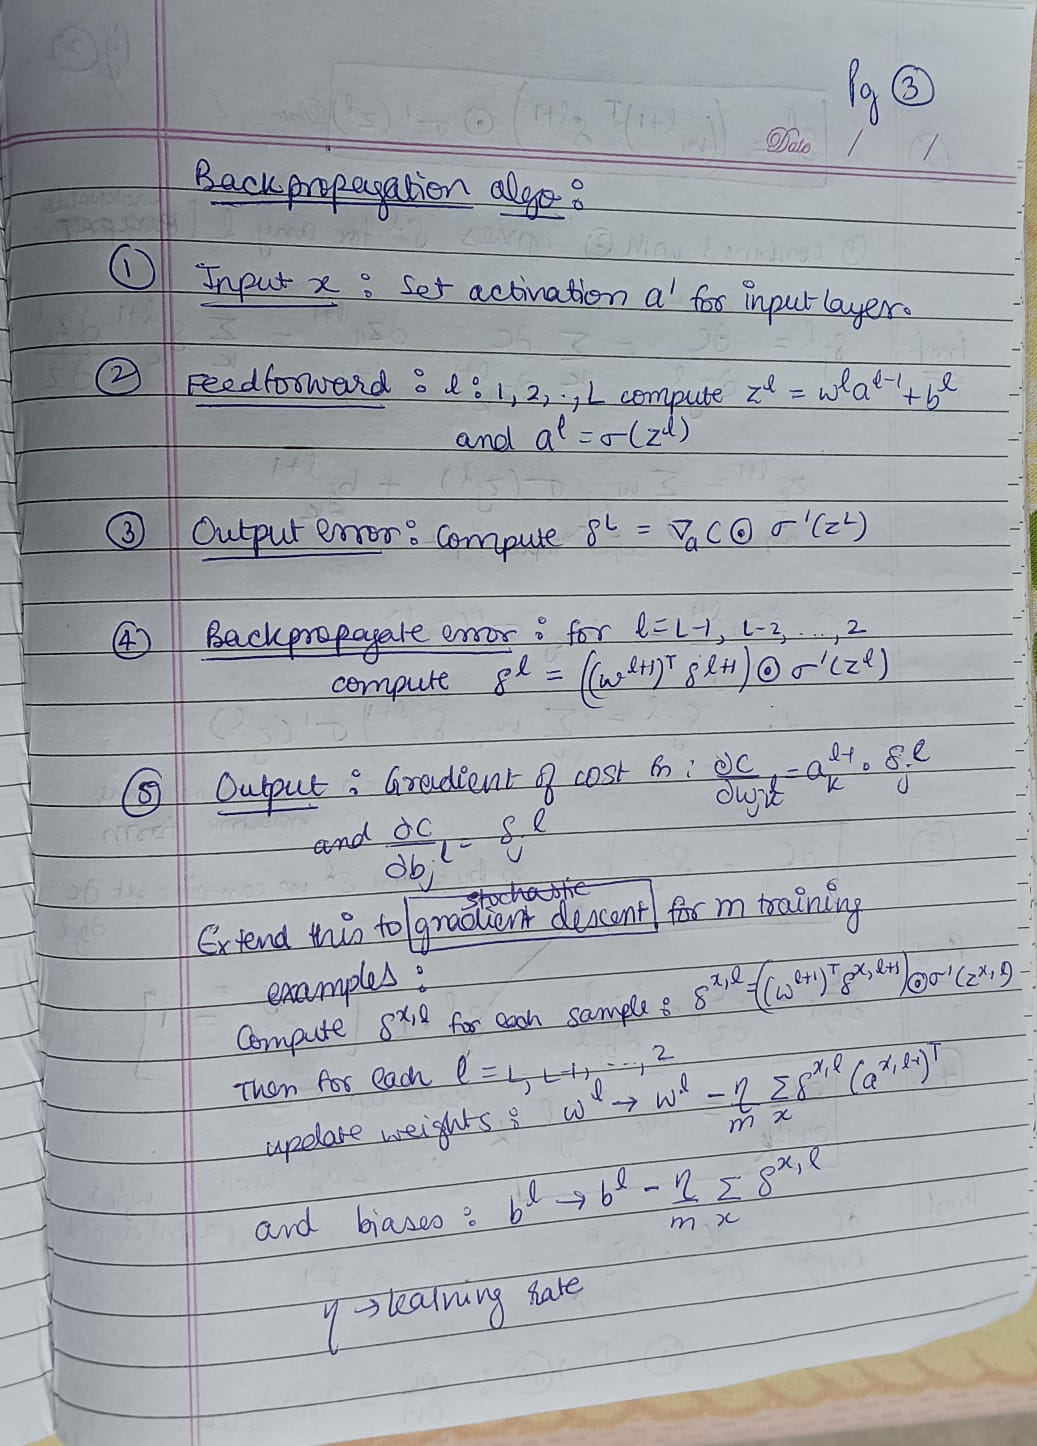 Pg ③
Date / /
Backpropagation algo:
① Input x : Set activation a¹ for input layer.
② Feedforward : l : 1, 2, .., L compute z^l = w^l a^{l-1} + b^l
and a^l = σ(z^l)
③ Output error : Compute δ^L = ∇_a C ⊙ σ'(z^L)
④ Backpropagate error : for l = L-1, L-2, ..., 2
compute δ^l = ((w^{l+1})^T δ^{l+1}) ⊙ σ'(z^l)
⑤ Output : Gradient of cost fn : ∂C/∂w_{jk}^l = a_k^{l-1} · δ_j^l
and ∂C/∂b_j^l = δ_j^l
stochastic
Extend this to gradient descent for m training
examples :
Compute δ^{x,l} for each sample : δ^{x,l} = ((w^{l+1})^T δ^{x,l+1}) ⊙ σ'(z^{x,l})
Then for each l = L, L-1, ..., 2
update weights : w^l → w^l - η/m Σ_x δ^{x,l} (a^{x,l-1})^T
and biases : b^l → b^l - η/m Σ_x δ^{x,l}
η → learning rate